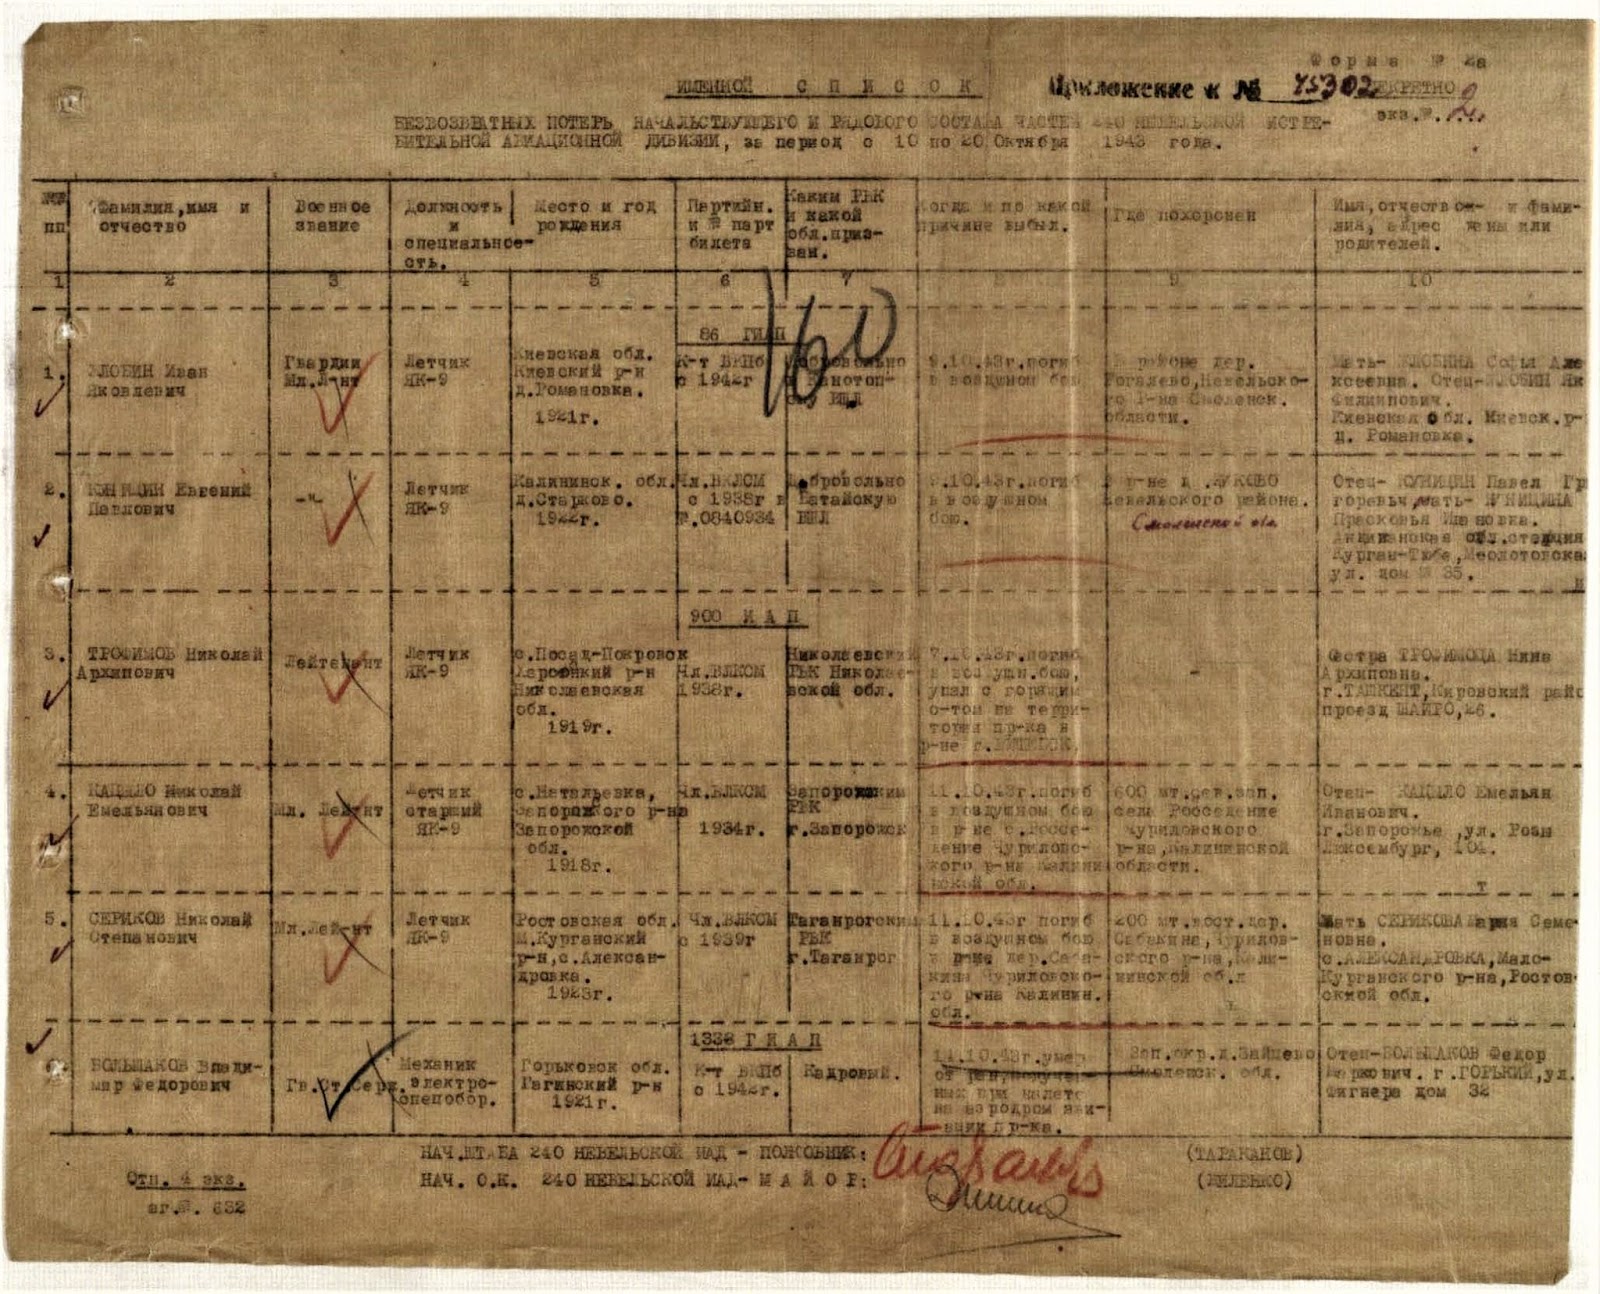 Форма № 2а
ИМЕННОЙ СПИСОК
Приложение к № 45302
СЕКРЕТНО
экз.№. 2.
БЕЗВОЗВРАТНЫХ ПОТЕРЬ НАЧАЛЬСТВУЮЩЕГО И РЯДОВОГО СОСТАВА ЧАСТЕЙ 240 НЕВЕЛЬСКОЙ ИСТРЕ-
БИТЕЛЬНОЙ АВИАЦИОННОЙ ДИВИЗИИ, за период с 10 по 20 Октября 1943 года.
№№
пп
Фамилия,имя и
отчество
Военное
звание
Должность
и
специально-
сть.
Место и год
рождения
Партийн.
и № парт
билета
Каким РВК
и какой
обл.приз-
ван.
Когда и по какой
причине выбыл.
Где похоронен
Имя,отчество- и фами-
лия, адрес жены или
родителей.
1 2 3 4 5 6 7 8 9 10
160
86 ГИАП
1.
ЗЛОБИН Иван
Яковлевич
Гвардии
Мл.Л-нт
Летчик
ЯК-9
Киевская обл.
Киевский р-н
д.Романовка.
1921г.
К-т ВКПб
с 1942г
Добровольно
в Конотоп-
скую ВШЛ
9.10.43г.погиб
в воздушном бою
В районе дер.
Рогалево,Невельско-
го р-на Смоленск.
области.
Мать- ЗЛОБИНА Софья Але
ксеевна. Отец-ЗЛОБИН Як
Филиппович.
Киевская обл. Киевск.р-
д. Романовка.
2.
КУНИЦИН Евгений
Павлович
-"-
Летчик
ЯК-9
Калининск. обл.
д.Старково.
1922г.
Чл.ВЛКСМ
с 1938г
№.0840934
Добровольно
в Батайскую
ВШЛ
9.10.43г.погиб
в воздушном
бою.
В р-не д.ЖУКОВО
Невельского района.
Смоленской обл.
Отец- КУНИЦИН Павел Гр
горевич,мать- КУНИЦИНА
Прасковья Ивановка.
обл.станция
Курган-Тюбе,
ул. дом № 35.
900 ИАП
3.
ТРОФИМОВ Николай
Архипович
Лейтенант
Летчик
ЯК-9
с.Посад-Покровск
Херсонкий р-н
Николаевская
обл.
1919г.
Чл.ВЛКСМ
1938г.
Николаевский
РВК Николае-
вской обл.
7.10.43г.погиб
в воздушн.бою,
упал с горящим
с-том на терри-
тории пр-ка в
р-не г.
-
Сестра ТРОФИМОВА Нина
Архиповна.
г.ТАШКЕНТ,Кировский райо
проезд ШАЙГО,26.
4.
КАЦЫЛО Николай
Емельянович
Мл. Лей-нт
Летчик
старший
ЯК-9
с.Натальевка,
Запорожкого р-на
Запорожской
обл.
1918г.
Чл.ВЛКСМ
1934г.
Запорожским
РВК
г.Запорожск
11.10.43г.погиб
в воздушном бою
в р-не с.Россе-
дение Чурилово-
кого р-на Калини
нской обл.
600 мт.сев.зап.
села Росседение
Чуриловского
р-на,Калининской
области.
Отец- КАЦЫЛО Емельян
Иванович.
г.Запорожье ,ул. Розы
Люксембург, 101.
т
5.
СЕРИКОВ Николай
Степанович
Мл.Лей-нт
Летчик
ЯК-9
Ростовская обл.
М.Курганский
р-н,с.Алексан-
дровка.
1923г.
Чл.ВЛКСМ
с 1939г
Таганрогским
РВК
г.Таганрог
11.10.43г погиб
в воздушном бою
в р-не дер.Саба-
кина Чуриловско-
го р-на Калинин.
обл.
200 мт.вост.дер.
Сабакина,Чурилов-
ского р-на,Кали-
нинской обл
Мать СЕРИКОВА Мария Семе
новна.
с.АЛЕКСАНДРОВКА,Мало-
Курганского р-на,Ростов-
ской обл.
133 ГИАП
6.
БОЛЬШАКОВ Влади-
мир Федорович
Гв.Ст.Серж.
Механик
электро-
спецобор.
Горьковск обл.
Гагинский р-н
1921г.
К-т ВКПб
с 1942г.
Кадровый.
14.10.43г.умер
от ран,получен-
ных при налете
на аэродром ави-
ации пр-ка.
Зап.окр.д.Зайцево
Смоленск. обл.
Отец-БОЛЬШАКОВ Федор
Маркович. г.ГОРЬКИЙ,ул.
Фигнера дом 32
НАЧ.ШТАБА 240 НЕВЕЛЬСКОЙ ИАД - ПОЛКОВНИК: (ТАРАКАНОВ)
НАЧ. О.К. 240 НЕВЕЛЬСКОЙ ИАД- М А Й О Р: (ЖИЛЕНКО)
Отп. 4 экз.
вг.№. 632